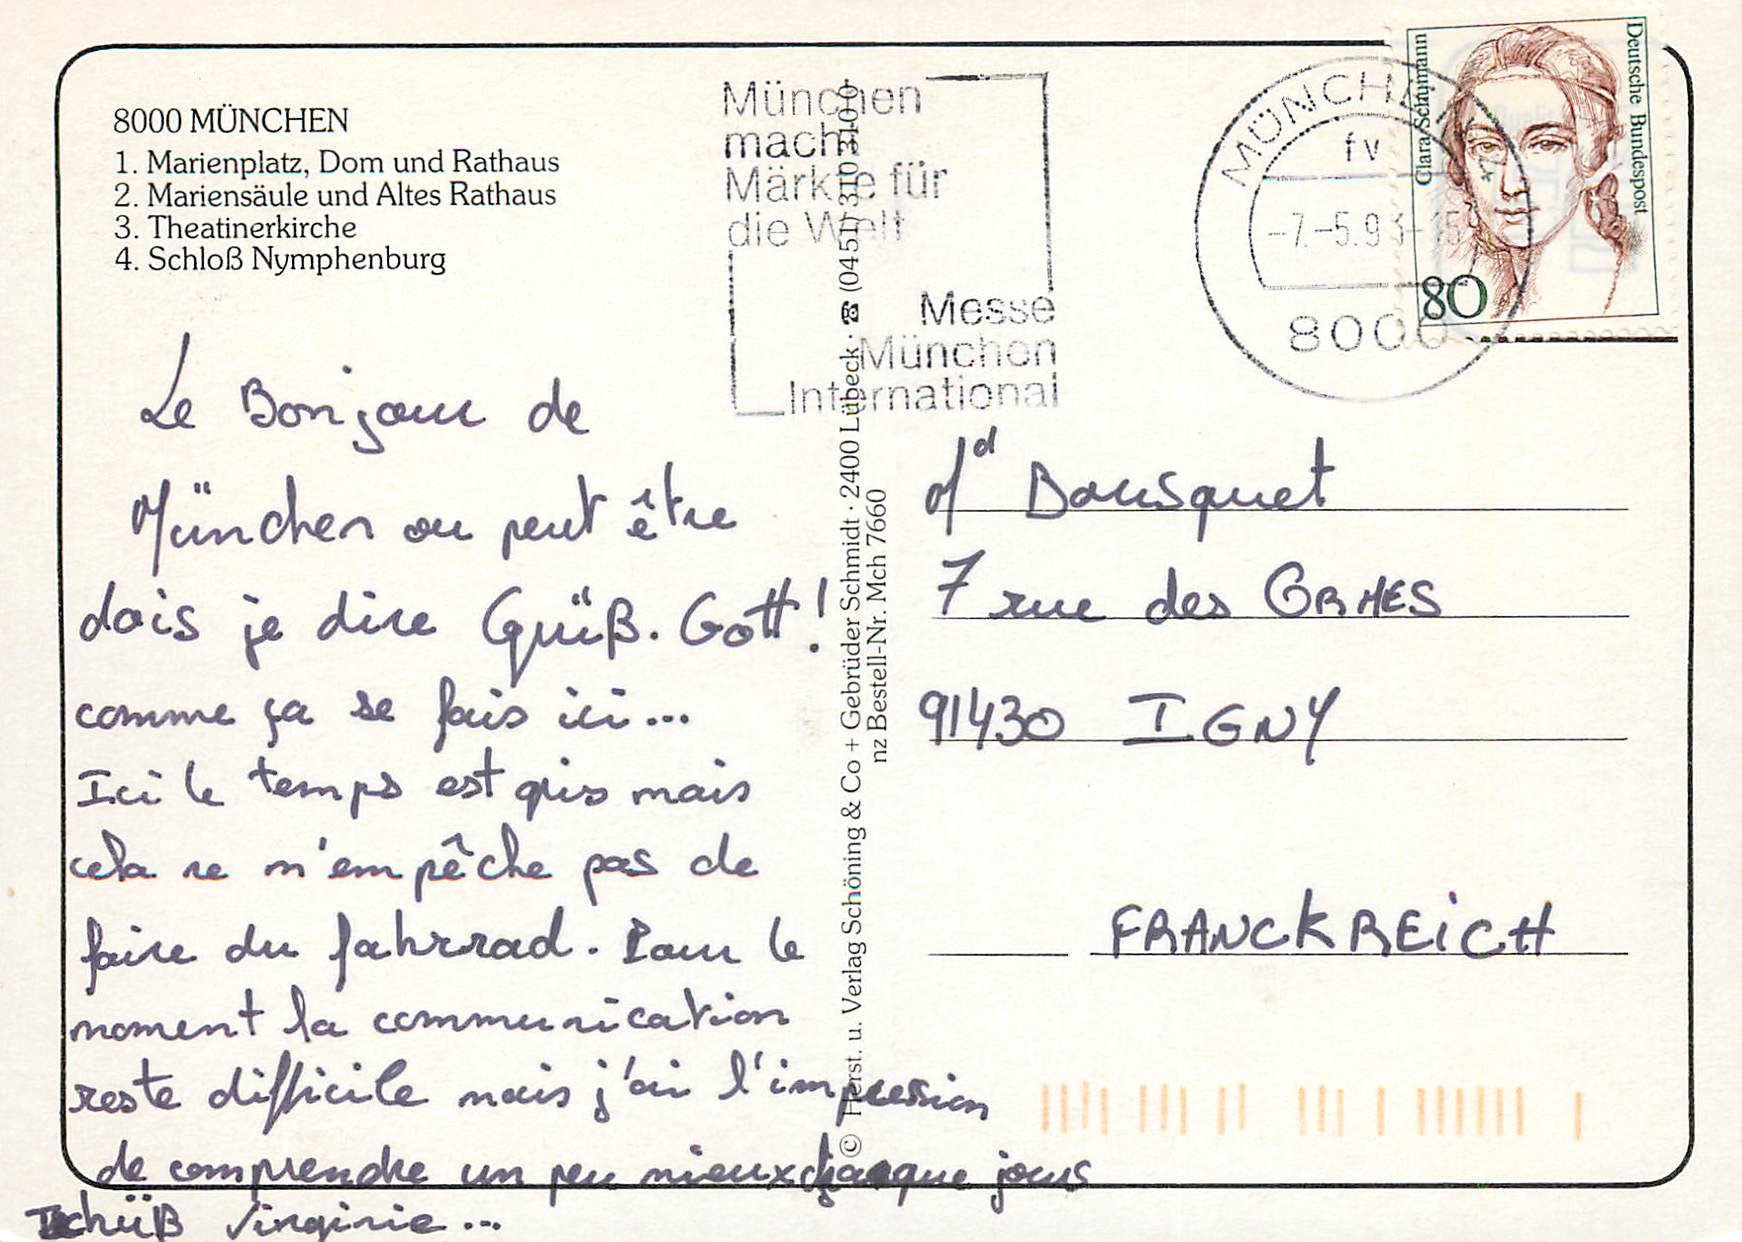 8000 MÜNCHEN
1. Marienplatz, Dom und Rathaus
2. Mariensäule und Altes Rathaus
3. Theatinerkirche
4. Schloß Nymphenburg
Le Bonjour de
München ou peut être
dois je dire Grüß. Gott!
comme ça se fais ici...
Ici le temps est gris mais
cela ne m'empêche pas de
faire du fahrrad. Pour le
moment la communication
reste difficile mais j'ai l'impression
de comprendre un peu mieux chaque jours
Tschüß Virginie...
© Herst. u. Verlag Schöning & Co + Gebrüder Schmidt · 2400 Lübeck · ☎ (0451) 310310
nz Bestell-Nr. Mch 7660
München
macht
Märkte für
die Welt
Messe
München
International
MÜNCHEN
fv
-7.-5.93-15
8000
Clara Schumann
Deutsche Bundespost
80
Md Bousquet
7 rue des ORMES
91430 IGNY
FRANCKREICH